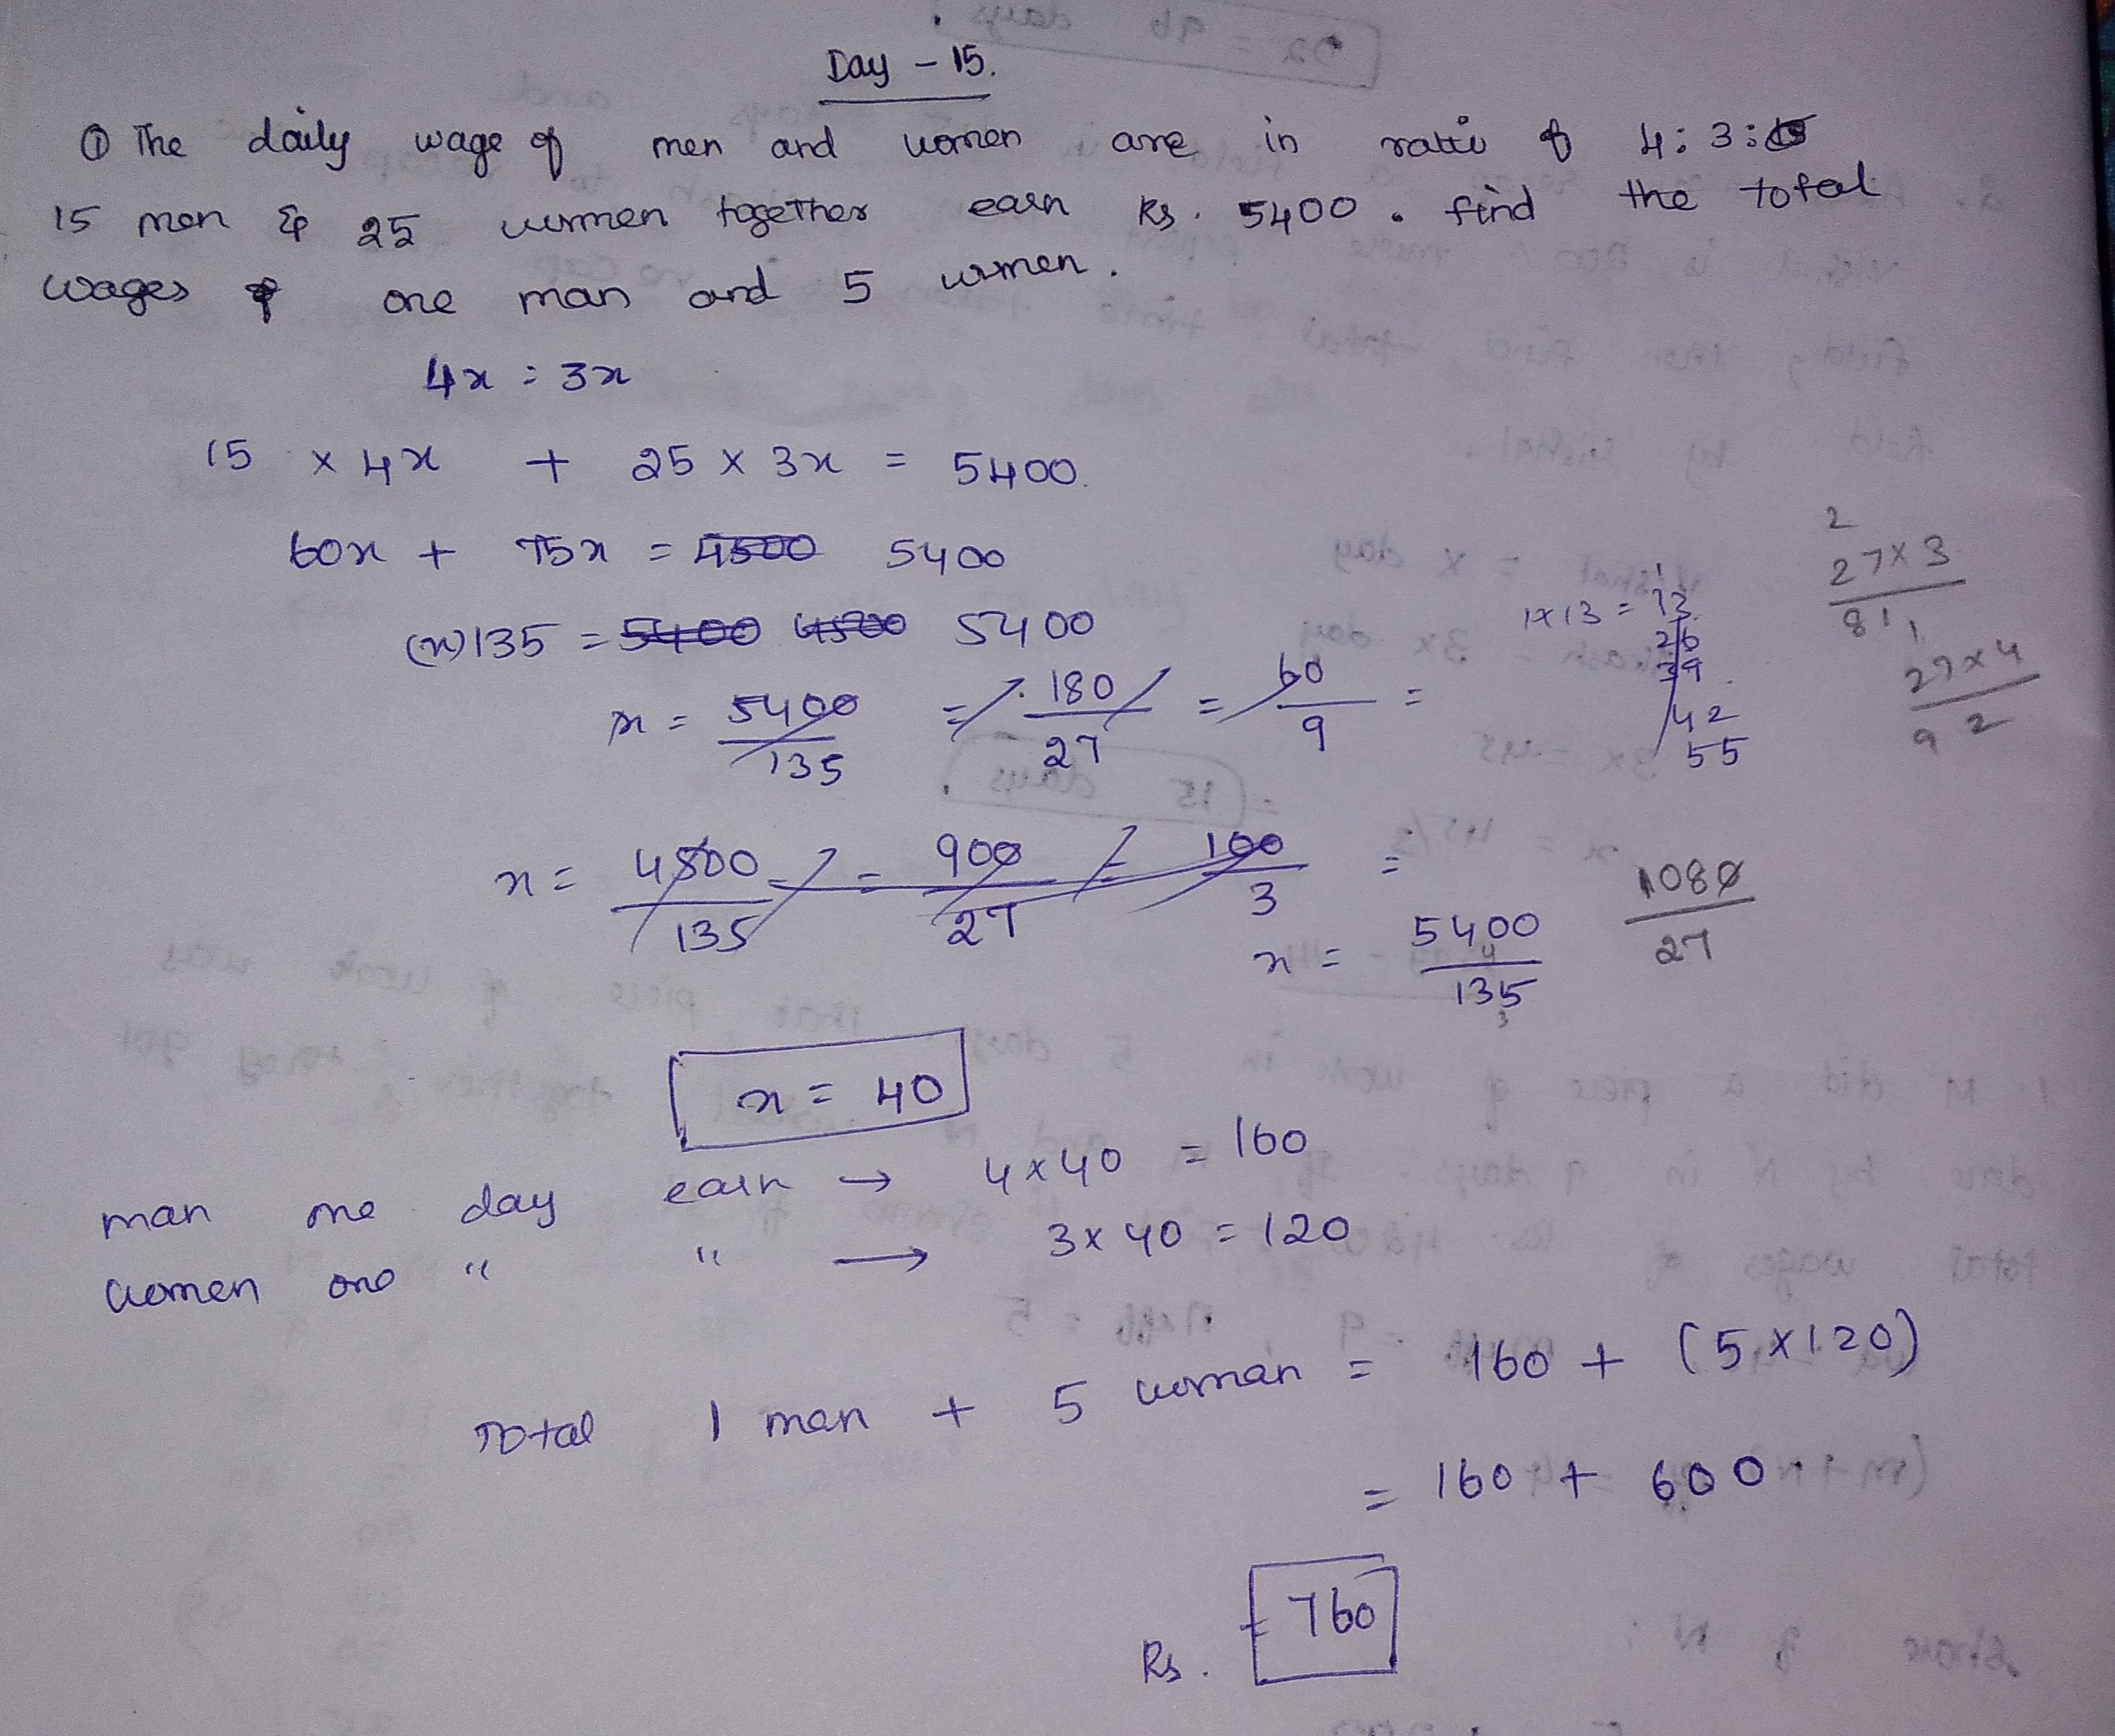 Day - 15.
① The daily wage of men and women are in ratio of 4:3:
15 men & 25 women together earn Rs. 5400. find the total
wages of one man and 5 women.
4x : 3x
15 x 4x + 25 x 3x = 5400.
60x + 75x = 4500 5400
(x) 135 = 5400 4500 5400
x = 5400/135 = 180/27 = 60/9 =
1x13 = 13
26
39
42
55
27x3
81
27x4
92
x = 4500/135 = 900/27 = 100/3 =
x = 5400/135
1080/27
x = 40
man one day earn → 4x40 = 160
women one " " → 3x40 = 120
Total 1 man + 5 woman = 160 + (5x120)
= 160 + 600
Rs. = 760